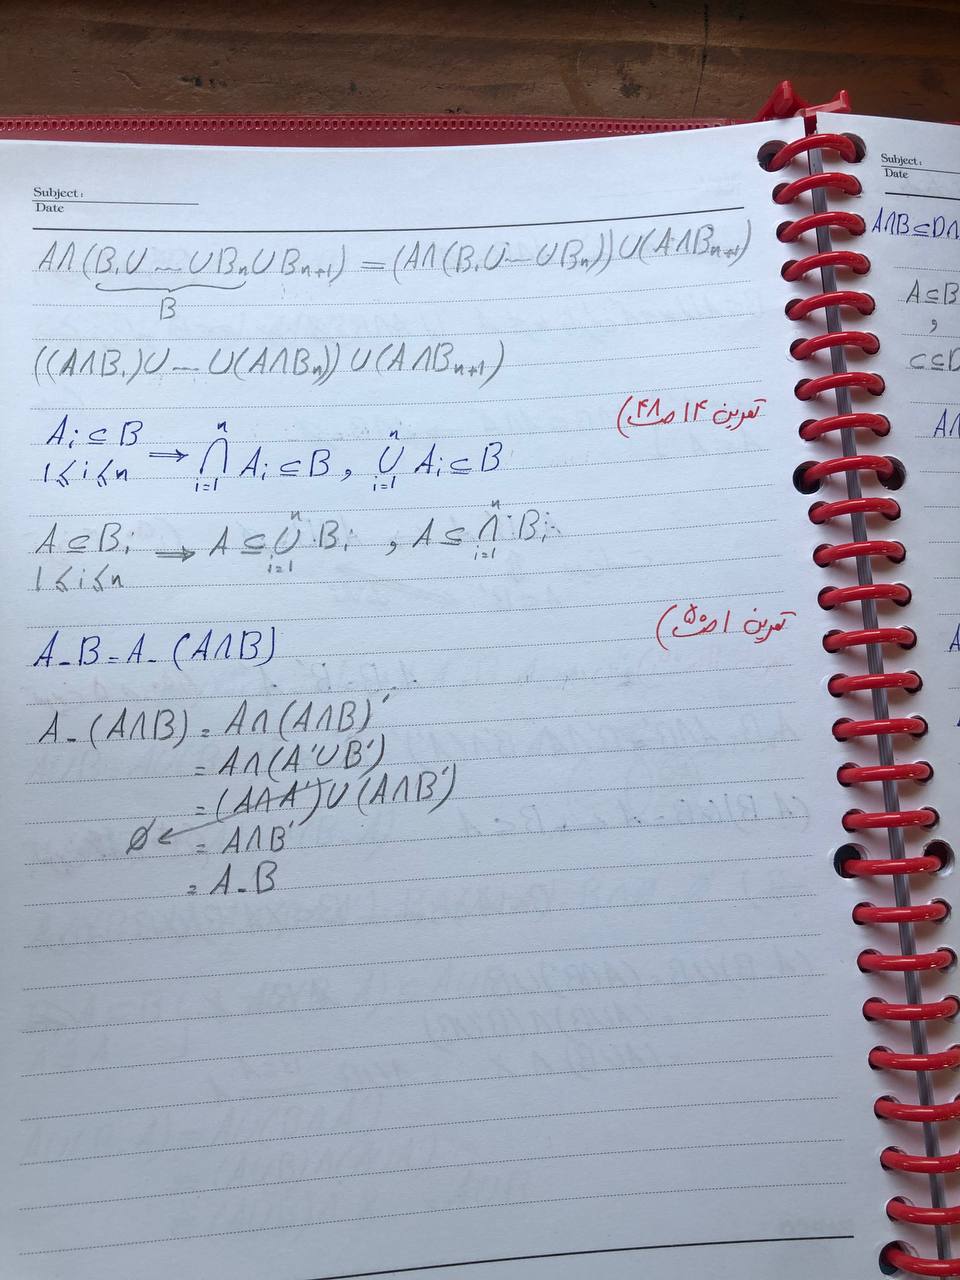 Subject:
Date
A∩(B₁∪---∪Bₙ∪Bₙ₊₁) = (A∩(B₁∪---∪Bₙ))∪(A∩Bₙ₊₁)
B
((A∩B₁)∪---∪(A∩Bₙ))∪(A∩Bₙ₊₁)
تمرین ۱۴ ص ۴۸)
Aᵢ ⊆ B ⇒ ⋂ⁿᵢ₌₁ Aᵢ ⊆ B , ⋃ⁿᵢ₌₁ Aᵢ ⊆ B
1 ≤ i ≤ n
A ⊆ Bᵢ ⇒ A ⊆ ⋃ⁿᵢ₌₁ Bᵢ , A ⊆ ⋂ⁿᵢ₌₁ Bᵢ
1 ≤ i ≤ n
تمرین ۱ ص ۵۰)
A - B = A - (A∩B)
A - (A∩B) = A∩(A∩B)′
= A∩(A′∪B′)
= (A∩A′)∪(A∩B′)
∅ ← = A∩B′
= A - B
Subject:
Date
A∩B⊆D∩
A⊆B
,
C⊆D
A∩